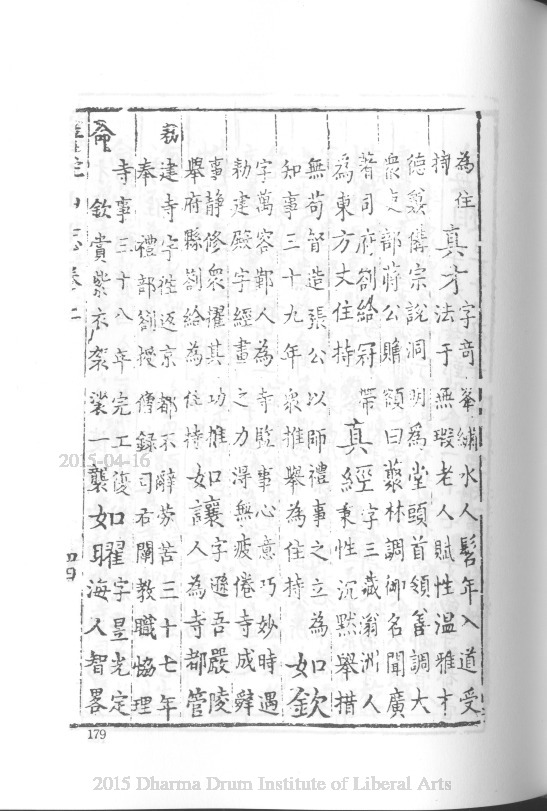 為住
持
真才
字奇峯繡水人髫年入道受
法于無瑕老人賦性溫雅才
德兼備宗說洞明為堂頭首領善調大
衆吏部蔣公贈額曰叢林調御名聞廣
著司府劄給冠帶
為東方丈住持
真經
字三藏翁洲人
秉性沉默舉措
無苟督造張公以師禮事之立為
知事三十九年衆推舉為住持
如欽
字萬容鄞人為寺監事心意巧妙時遇
勑建殿宇經畫之力得無疲倦寺成辭
事静修衆懼其功推
舉府縣劄給為住持
如讓
字遜吾嚴陵
人為寺都管
勑
建寺宇往返京都不辭勞苦三十七年
奉 禮部劄授僧錄司右闡教職協理
寺事三十八年完工復
命 欽賞紫衣袈裟一襲
如曜
字昱光定
海人智畧
陀山志卷二
四九
179
2015-04-16
2015 Dharma Drum Institute of Liberal Arts